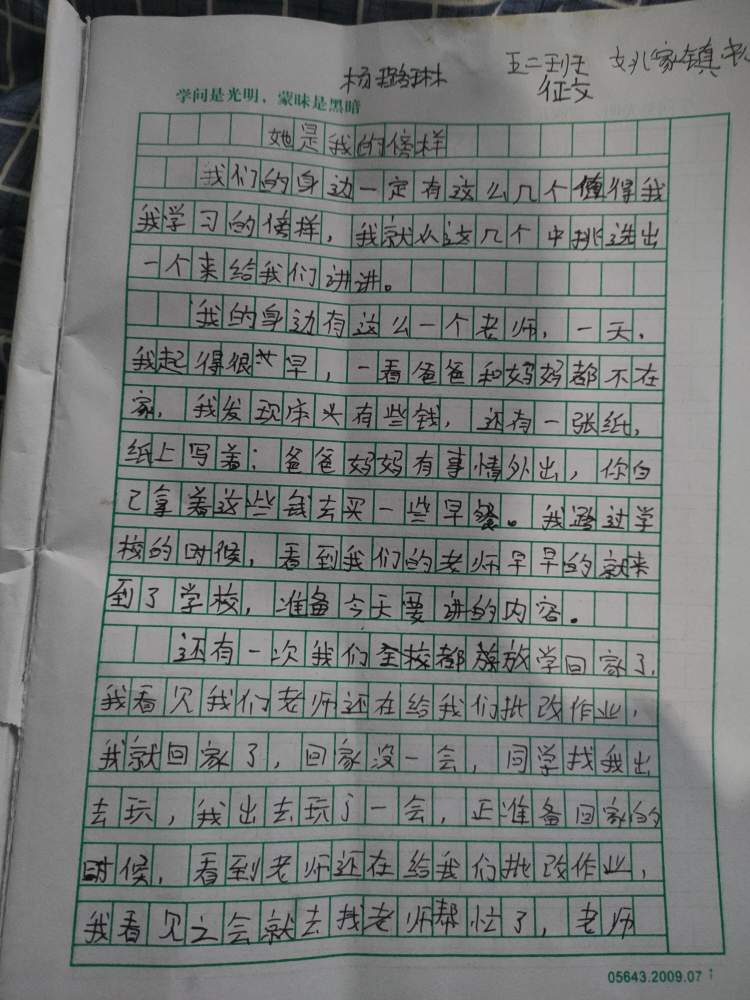 五二班 姚家镇中心
杨璐琳 征文
学问是光明，蒙昧是黑暗
她是我的傍样
我们的身边一定有这么几个值得我
我学习的傍样，我就从这几个中挑选出
一个来给我们讲讲。
我的身边有这么一个老师，一天，
我起得很早，一看爸爸和妈妈都不在
家，我发现床头有些钱，还有一张纸，
纸上写着：爸爸妈妈有事情外出，你自
己拿着这些钱去买一些早餐。我路过学
校的时候，看到我们的老师早早的就来
到了学校，准备今天要讲的内容。
还有一次我们全校都放学回家了，
我看见我们老师还在给我们批改作业，
我就回家了，回家没一会，同学找我出
去玩，我出去玩了一会，正准备回家的
时候，看到老师还在给我们批改作业，
我看见之会就去找老师帮忙了，老师
05643.2009.07